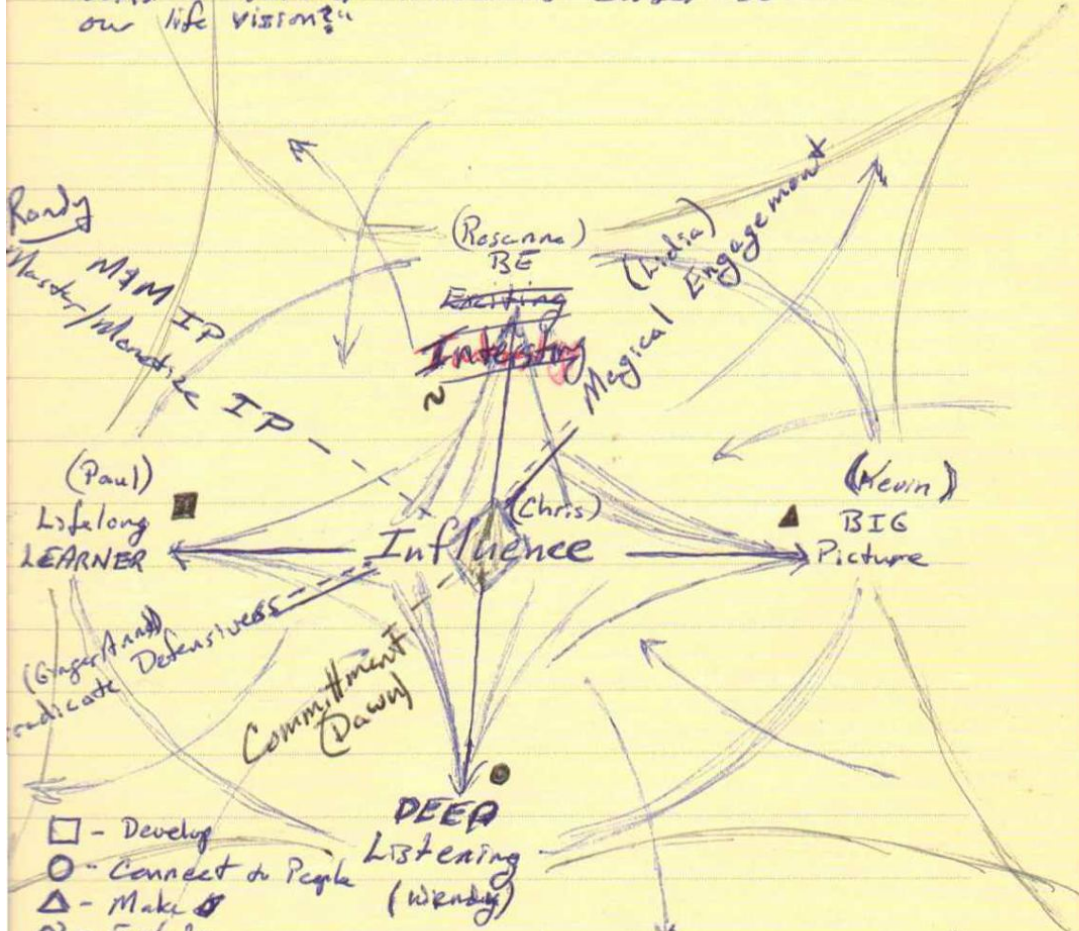 our life vission?"
Randy
M&M IP
Master/Monetize IP
(Rosanna)
BE
Exciting
Intersting
~
(Lidia)
Magical Engagement
(Paul)
Lifelong
LEARNER
(Chris)
Influence
(Kevin)
BIG
Picture
(Ginger/Anna)
eradicate Defensiveness
Committment
(Dawn)
DEEP
Listening
(Wendy)
□ - Develop
○ - Connect to People
△ - Make $